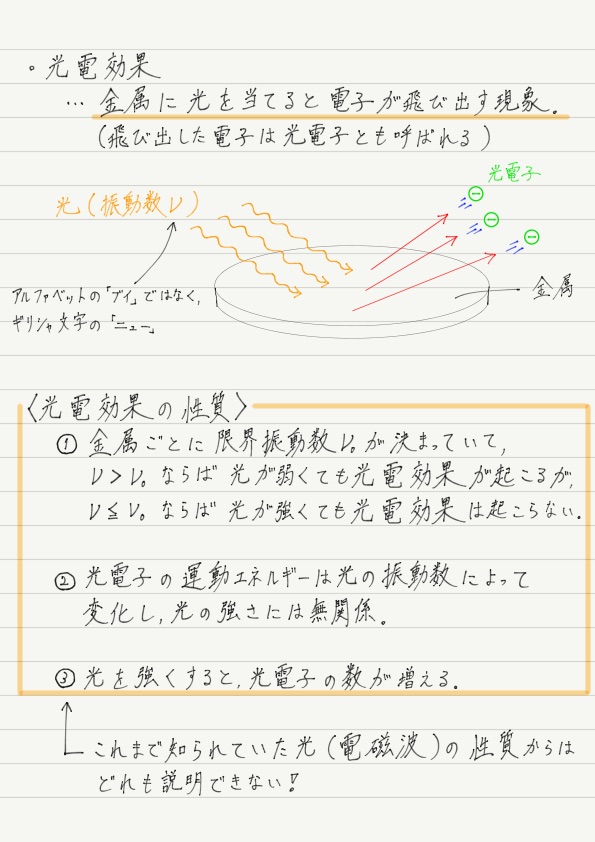 • 光電効果
… 金属に光を当てると電子が飛び出す現象。
(飛び出した電子は光電子とも呼ばれる)
光電子
光(振動数ν)
金属
アルファベットの「ブイ」ではなく,
ギリシャ文字の「ニュー」
〈光電効果の性質〉
① 金属ごとに限界振動数ν₀が決まっていて,
ν>ν₀ならば光が弱くても光電効果が起こるが,
ν≦ν₀ならば光が強くても光電効果は起こらない.
② 光電子の運動エネルギーは光の振動数によって
変化し,光の強さには無関係。
③ 光を強くすると,光電子の数が増える.
これまで知られていた光(電磁波)の性質からは
どれも説明できない!